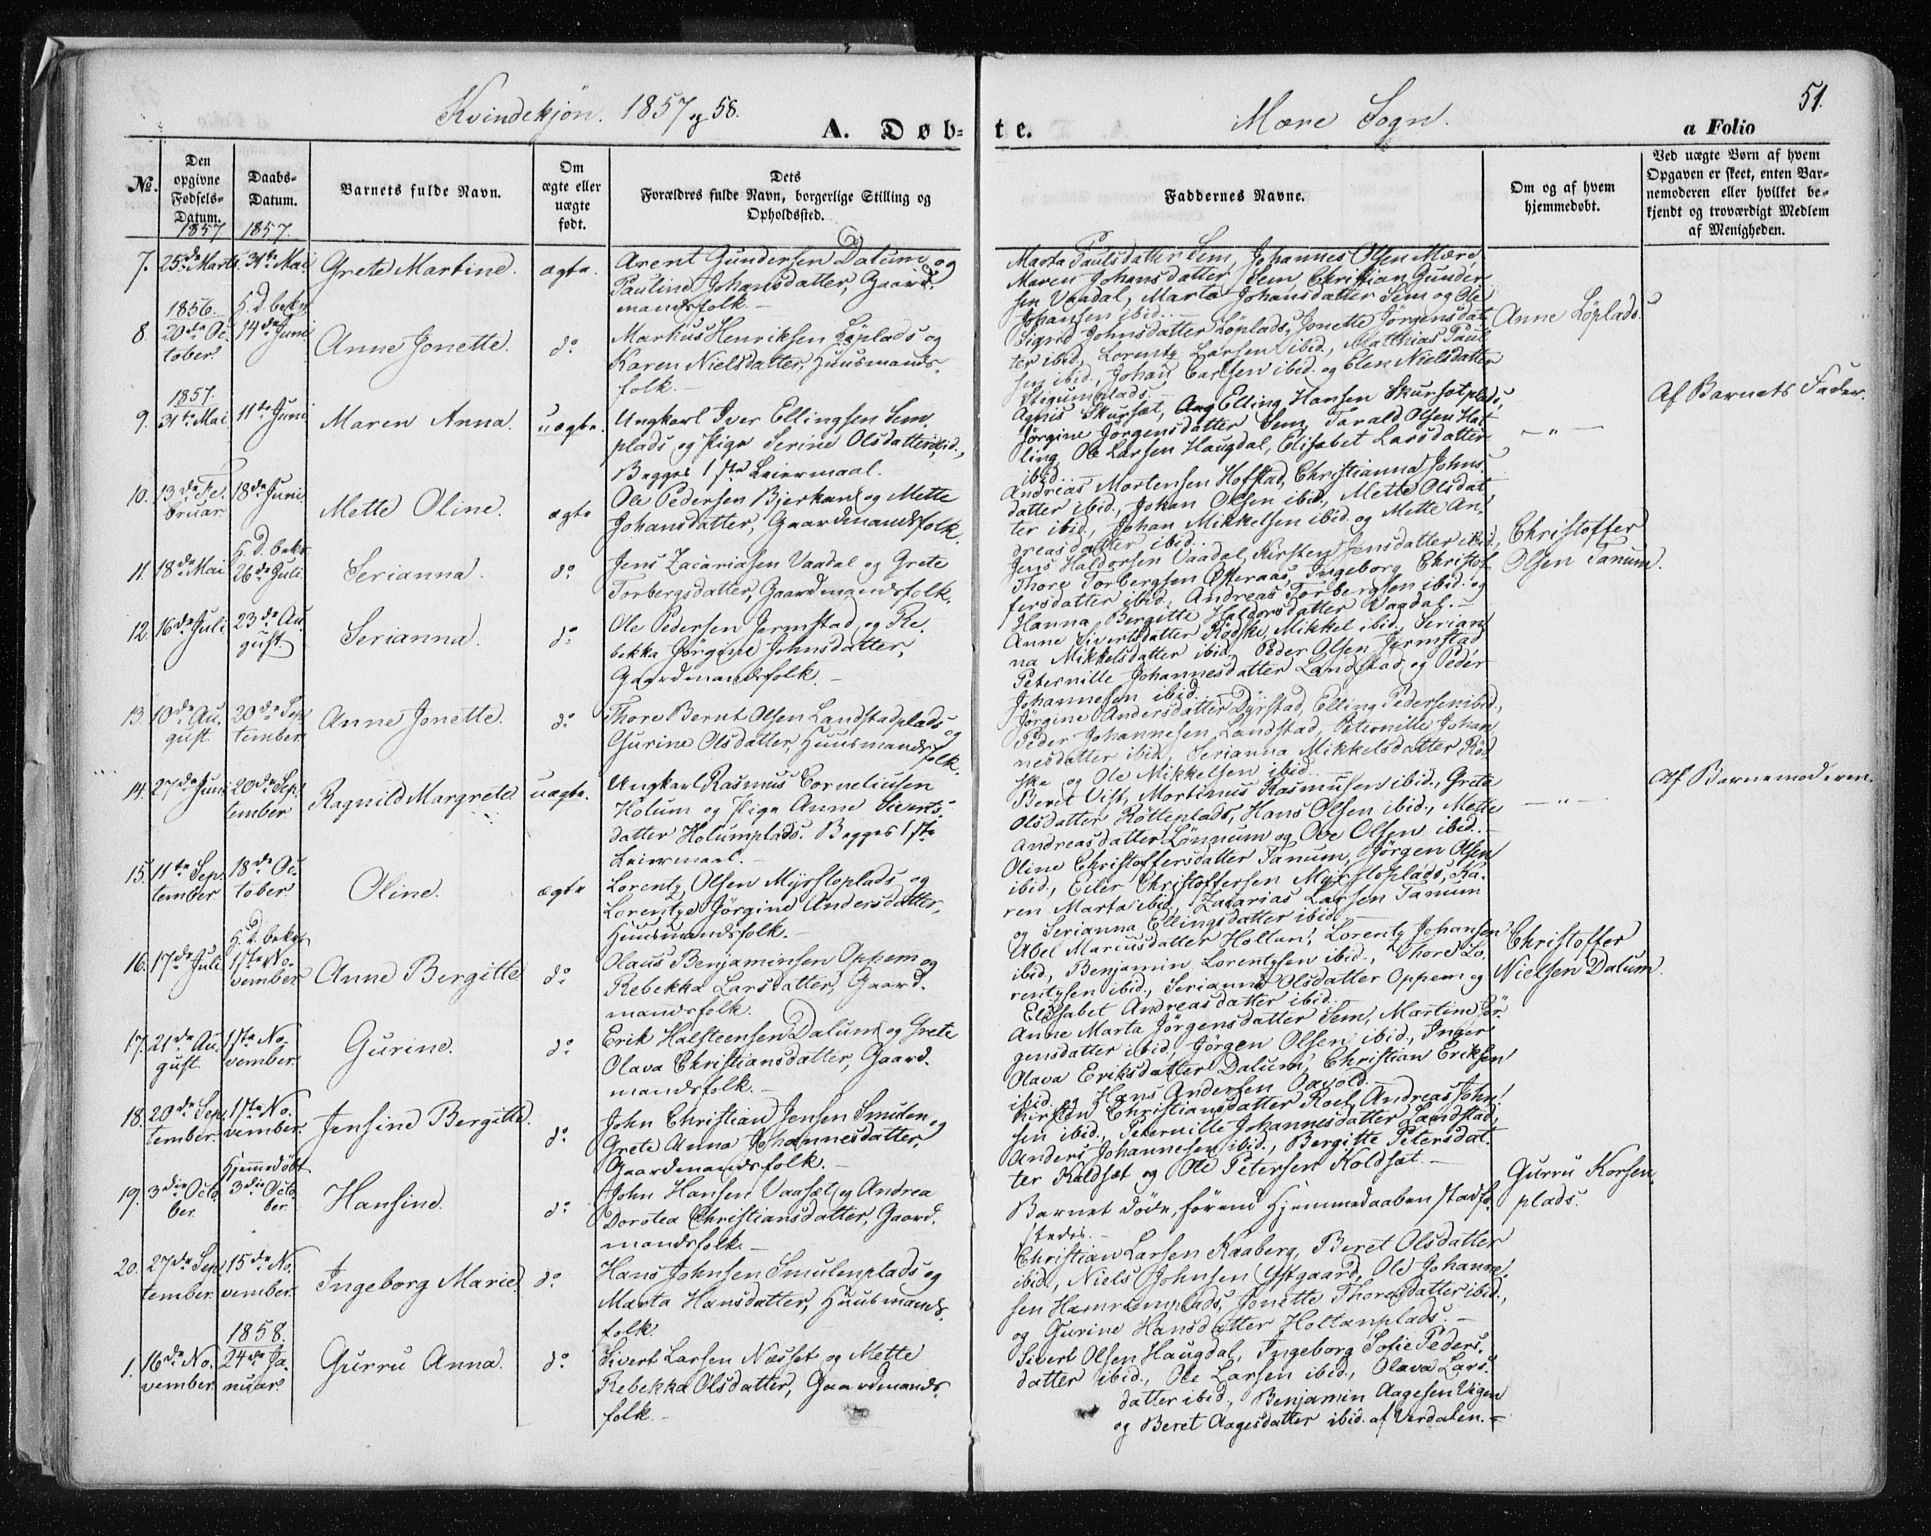 Kvindekjøn. 1857 og 58.
A. Døb-
te.
Mære Sogn.
51.
a Folio
No.
Den opgivne Fødsels-Datum.
Daabs-Datum.
Barnets fulde Navn.
Om ægte eller uægte født.
Dets Forældres fulde Navn, borgerlige Stilling og Opholdssted.
Faddernes Navne.
Om og af hvem hjemmedøbt.
Ved uægte Børn af hvem Opgaven er skeet, enten Barnemoderen eller hvilket bekjendt og troværdigt Medlem af Menigheden.
1857 1857.
7. 25de Marts 31te Mai Grete Martine. ægte.
Arent Gundersen Dalum og
Pauline Johansdatter, Gaard-
mandsfolk.-
Marta Paulsdatter Sem, Johannes Olsen Mære
Maren Johansdatter Sem, Christian Gunder-
sen Vaadal, Marta Johansdatter Sem og Ole
Johansen ibid.-
1856. H.D. bekr.
8. 20de Oc-
tober. 14de Juni Anne Jonette. do
Markus Henriksen Löplads og
Karen Nielsdatter, Huusmands-
folk.-
Sigrid Johnsdatter Löplads, Jonette Jörgensdat-
ter ibid., Lorentz Larsen ibid., Matthias Paul-
sen ibid., Johan Carlsen ibid. og Elen Nielsdatter
Anne Löplads.
1857.
9. 31te Mai 11te Juni Maren Anna. uægte.
Ungkarl Iver Ellingsen Sem-
plads og Pige Serine Olsdatter ibid.,
Begges 1ste Leiermaal.
Agnis Skursæt, Elling Hansen Skursætplads,
Jörgine Jörgensdatter Sem, Tarald Olsen Hal-
ling, Ole Larsen Haugdal, Elisabet Larsdatter
ibid.
- " -
Af Barnets Fader.
10. 13de Fe-
bruar. 18de Juni Mette Oline. ægte
Ole Pedersen Bierkan og Mette
Johansdatter, Gaardmandsfolk.
Andreas Mortensen Hofstad, Christianna Johns-
datter ibid., Johan Olsen ibid., Mette Olsdat-
ter ibid., Johan Mikkelsen ibid. og Mette An-
dreasdatter ibid.
H.D. bekr.
11. 18de Mai 26de Juli Serianna. do
Jens Zacariasen Vaadal og Grete
Torbergsdatter, Gaardmandsfolk.
Jens Haldorsen Vaadal, Kirsten Jensdatter ibid.,
Thore Torbergsen Østeraas, Ingeborg Christof-
fersdatter ibid., Andreas Torbergsen ibid. og
Hanna Bergitte Haldorsdatter Vaadal.-
Christoffer
Olsen Tanum.
12. 16de Juli 23de Au-
gust. Serianna. do
Ole Pedersen Jermstad og Re-
bekka Jörgine Johnsdatter,
Gaardmandsfolk.-
Anne Sivertsdatter Rödske, Mikkel ibid., Serian-
na Mikkelsdatter ibid., Peder Olsen Jermstad
Peternille Johannesdatter Landstad og Peder
Johannesen ibid.
13. 10de Au-
gust. 20de Sep-
tember. Anne Jonette. do
Thore Bernt Olsen Landstadplads og
Gurine Olsdatter, Huusmands-
folk.
Jörgine Andersdatter Dyrstad, Elling Pedersen ibid.,
Peder Johannesen Landstad, Peternille Johan-
nesdatter ibid., Serianna Mikkelsdatter Röd-
ske og Ole Mikkelsen ibid.
14. 27de Juni 20de Sep-
tember. Ragnild Margrete uægte.
Ungkarl Rasmus Corneliusen
Holum og Pige Anne Siverts-
datter Holumplads. Begges 1ste
Leiermaal.-
Beret Vist, Mortinus Rasmusen ibid., Grete
Olsdatter Rölleplads, Hans Olsen ibid., Mette
Andreasdatter Lönnum og Ove Olsen ibid.-
- " -
Af Barnemoderen.
15. 11te Sep-
tember 18de Oc-
tober. Oline. ægte
Lorentz Olsen Myrsloplads og
Lorentze Jörgine Andersdatter,
Huusmandsfolk.-
Oline Christoffersdatter Tanum, Jörgen Olsen
ibid., Eiler Christoffersen Myrsloplads, Ka-
ren Marta ibid., Zacarias Larsen Tanum
og Serianna Ellingsdatter ibid.-
H.D. bekr.
16. 17de Juli 1ste No-
vember. Anne Bergitte do
Olaus Benjaminsen Oppem og
Rebekka Larsdatter, Gaard-
mandsfolk.
Abel Marcusdatter Holtan, Lorentz Johansen
ibid., Benjamin Lorentzen ibid., Thore Lo-
rentzen ibid., Serianna Olsdatter Oppem og
Elisabet Andreasdatter ibid.-
Christoffer
Nielsen Dalum.
17. 21de Au-
gust. 1ste No-
vember. Gurine. do
Erik Halfsteensen Dalum og Grete
Olava Christiansdatter, Gaard-
mandsfolk.-
Anne Marta Jörgensdatter Sem, Martine Jör-
gensdatter ibid., Jörgen Olsen ibid., Inger
Olava Eriksdatter Dalum, Christian Eriksen
ibid. og Hans Andersen Saxold.-
18. 20de Sep-
tember. 1ste No-
vember. Jensine Bergitte. do
John Christian Jensen Smulen og
Grete Anna Johannesdatter,
Gaardmandsfolk.-
Kirsten Christiansdatter Roel, Andreas John-
sen ibid., Peternille Johannesdatter Landstad,
Anders Johannesen ibid., Bergitte Petersdat-
ter Koldsæt og Ole Petersen Koldsæt.-
Hjemmedöbt
19. 3die Octo-
ber. 3die Octo-
ber. Hansine. do
John Hansen Vaasæt og Andrea
Dorotea Christiansdatter, Gaard-
mandsfolk.-
Barnet döde, förend Hjemmedaaben stadfæ-
stedes.-
Gurru Korsen-
plads.
20. 27de Sep-
tember. 15de No-
vember. Ingeborg Marie. do
Hans Johnsen Smulenplads og
Marta Hansdatter, Huusmands-
folk.
Christian Larsen Kaaberg, Beret Olsdatter
ibid., Niels Johnsen Opgaard, Ole Johanne-
sen Hamremplads, Jonette Thoresdatter ibid.,
og Gurine Hansdatter Holtanplads.-
1858.
1. 16de No-
vember. 24de Ja-
nuar. Gurru Anna. do
Sivert Larsen Næsset og Mette
Rebekka Olsdatter, Gaardmands-
folk.-
Sivert Olsen Haugdal, Ingeborg Sofie Peders-
datter ibid., Ole Larsen ibid., Olava Lars-
datter ibid., Benjamin Aagesen Vigen
og Beret Aagesdatter ibid. af Verdalen.-